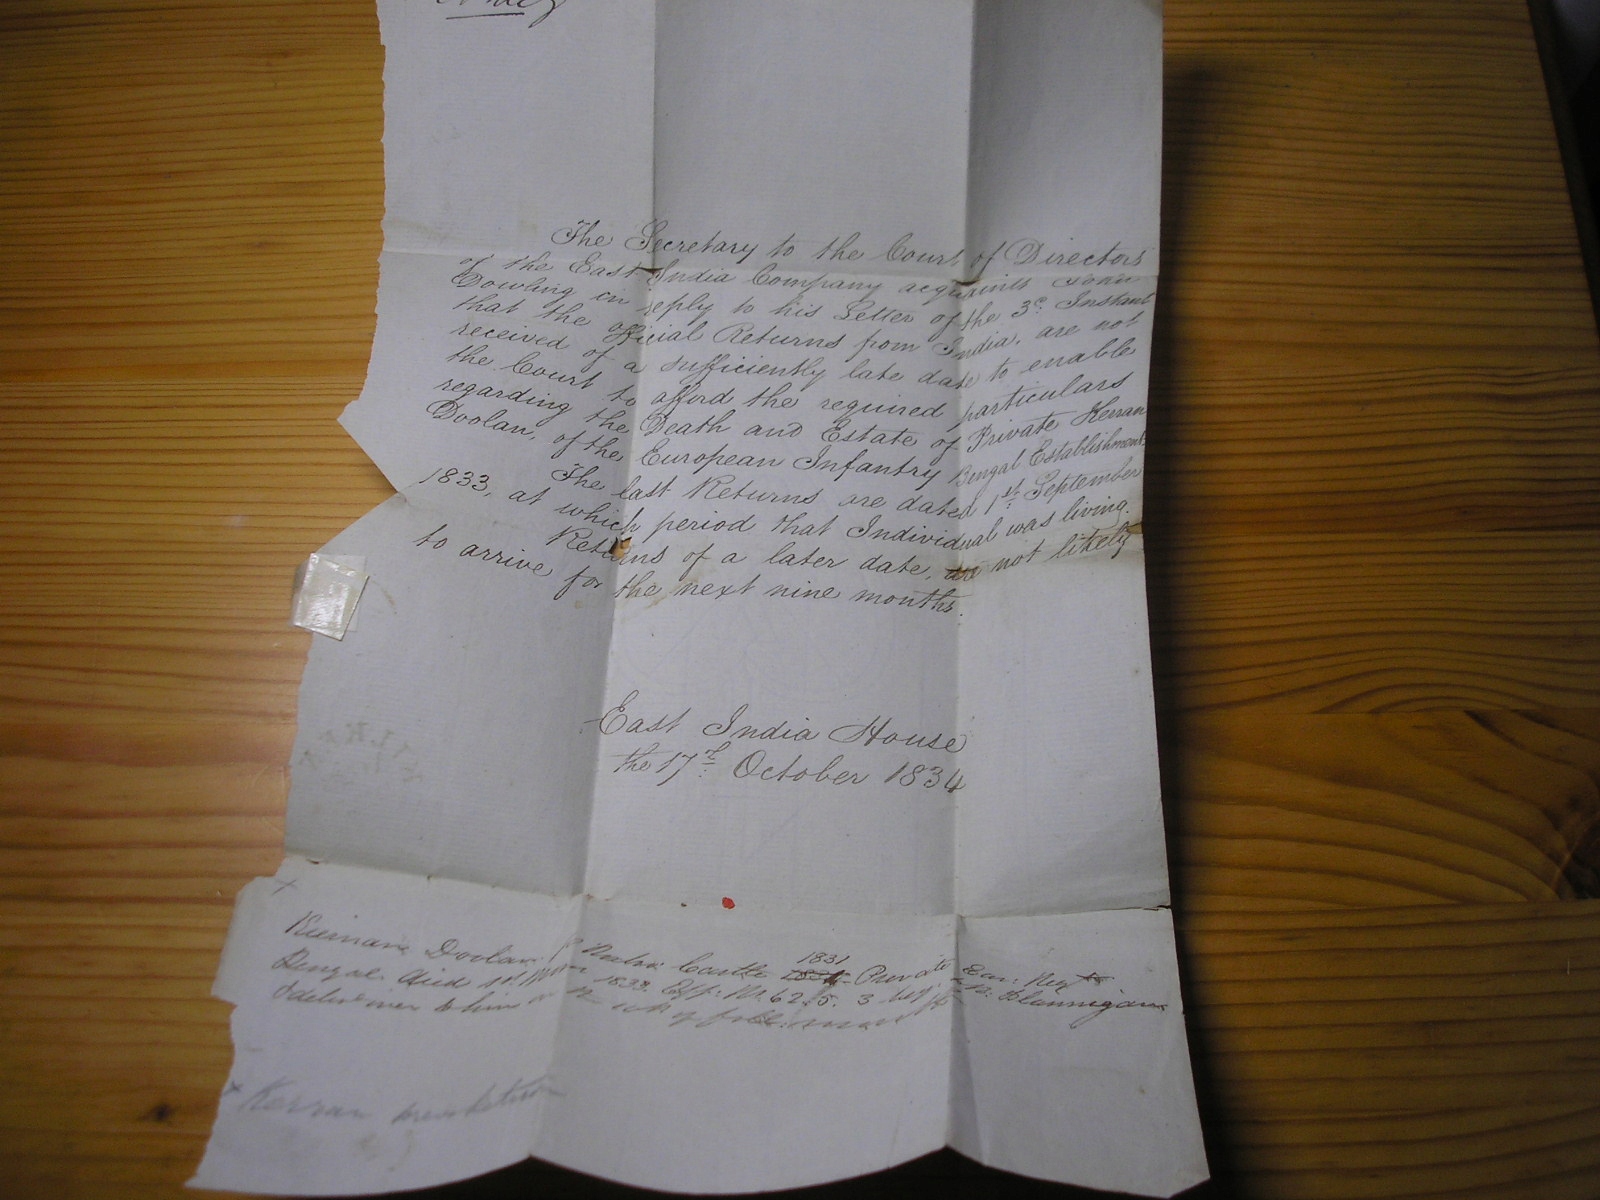 The Secretary to the Court of Directors
of the East India Company acquaints John
Dowling in reply to his Letter of the 3d Instant
that the official Returns from India, are not
received of a sufficiently late date to enable
the Court to afford the required particulars
regarding the Death and Estate of Private Kerran
Doolan, of the European Infantry Bengal Establishment.
The last Returns are dated 1st September
1833, at which period that Individual was living.
Returns of a later date, are not likely
to arrive for the next nine months.
East India House
the 17th October 1834
1831
Doolan Castle Private Eur: Regt
Bengal died 1st 1833. Eff: 62. 5. 3
over to him
Kerran